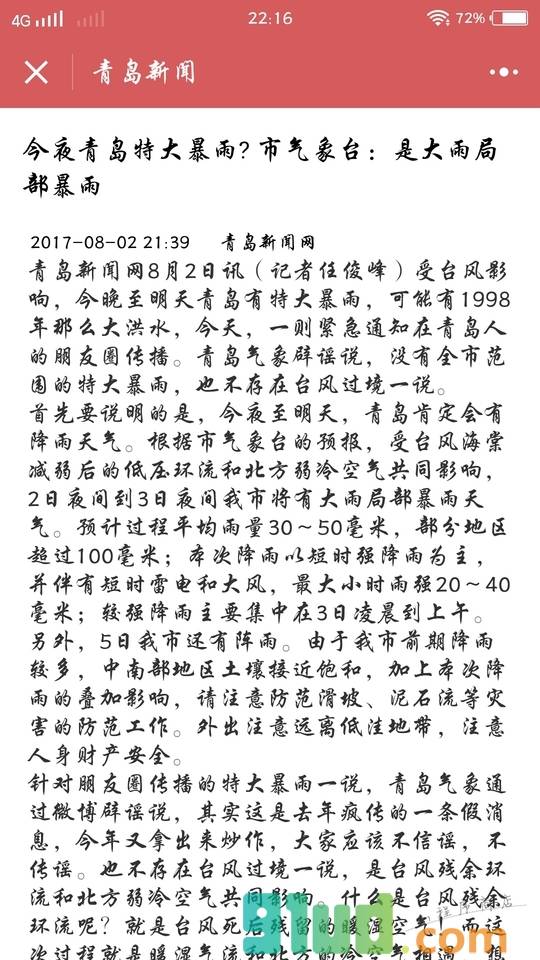 4G 22:16 72%
青岛新闻
今夜青岛特大暴雨?市气象台：是大雨局
部暴雨
2017-08-02 21:39 青岛新闻网
青岛新闻网8月2日讯（记者任俊峰）受台风影
响，今晚至明天青岛有特大暴雨，可能有1998
年那么大洪水，今天，一则紧急通知在青岛人
的朋友圈传播。青岛气象辟谣说，没有全市范
围的特大暴雨，也不存在台风过境一说。
首先要说明的是，今夜至明天，青岛肯定会有
降雨天气。根据市气象台的预报，受台风海棠
减弱后的低压环流和北方弱冷空气共同影响，
2日夜间到3日夜间我市将有大雨局部暴雨天
气。预计过程平均雨量30～50毫米，部分地区
超过100毫米；本次降雨以短时强降雨为主，
并伴有短时雷电和大风，最大小时雨强20～40
毫米；较强降雨主要集中在3日凌晨到上午。
另外，5日我市还有阵雨。由于我市前期降雨
较多，中南部地区土壤接近饱和，加上本次降
雨的叠加影响，请注意防范滑坡、泥石流等灾
害的防范工作。外出注意远离低洼地带，注意
人身财产安全。
针对朋友圈传播的特大暴雨一说，青岛气象通
过微博辟谣说，其实这是去年疯传的一条假消
息，今年又拿出来炒作，大家应该不信谣，不
传谣。也不存在台风过境一说，是台风残余环
流和北方弱冷空气共同影响。什么是台风残余
环流呢？就是台风死后残留的暖湿空气，而这
次过程就是暖湿气流和北方的冷空气相遇，想
91ud.com